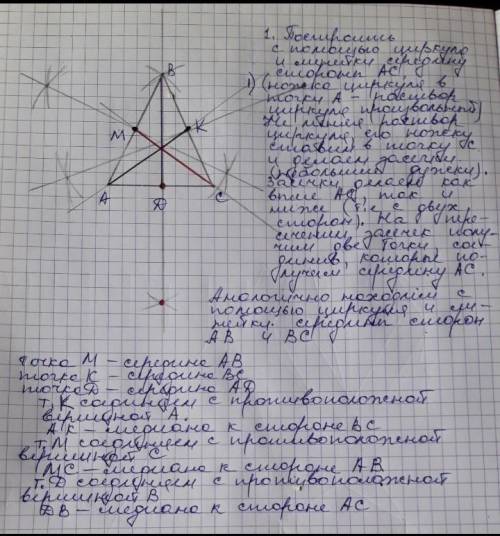 1. Построить
с помощью циркуля
и линейки середину
стороны AC,
1) (ножка циркуля в
точку A - раствор
циркуля произвольный)
Не меняя раствор
циркуля, его ножку
ставим в точку C
и делаем засечки
(небольшие дужки).
Засечки делаем как
выше AC, так и
ниже (т.е. с двух
сторон). На пере-
сечении засечек полу-
чим две точки, сое-
динив, которые по-
лучим середину AC.
B
M
K
A
D
C
Аналогично находим с
помощью циркуля и ли-
нейки середины сторон
AB и BC
точка M - середина AB
точка K - середина BC
точка D - середина AD
т. K соединяем с противоположной
вершиной A.
AK - медиана к стороне BC
т. M соединяем с противоположной
вершиной C
MC - медиана к стороне AB
т. D соединяем с противоположной
вершиной B
DB - медиана к стороне AC